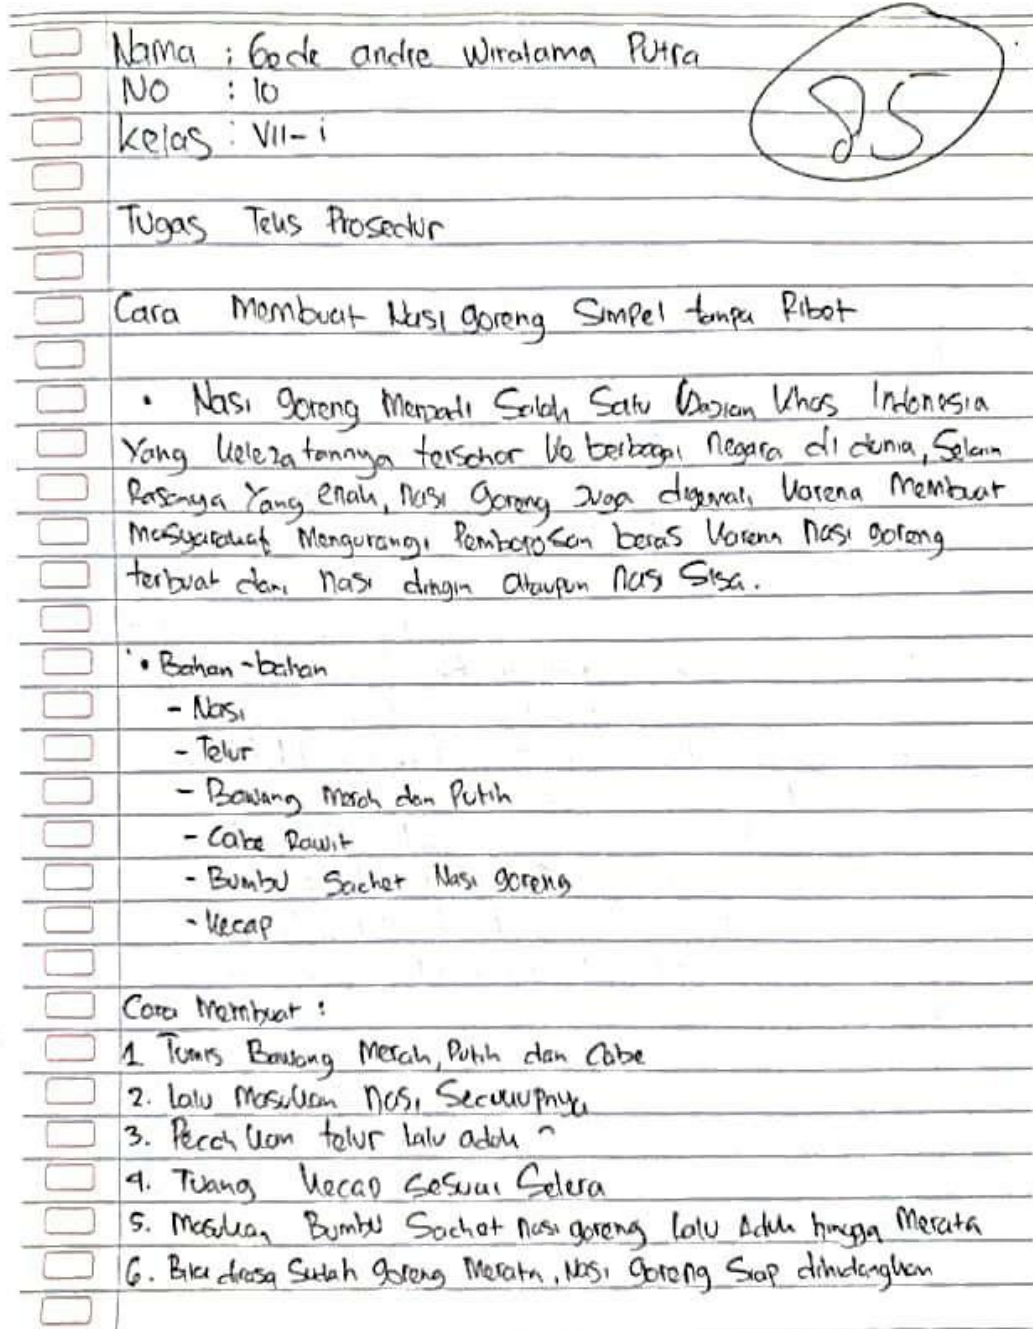 Nama : Gede andre Wiratama Putra
85
No : 10
Kelas : VII-i
Tugas Teks Prosedur
Cara Membuat Nasi goreng Simpel tampa Ribet
• Nasi goreng Menjadi Salah Satu Sajian khas Indonesia
Yang kelezatannya tersohor ke berbagai negara di dunia, Selain
Rasanya Yang enak, nasi goreng Juga digemari karena Membuat
masyarakat Mengurangi Pemborosan beras karena nasi goreng
terbuat dari nasi dingin ataupun nasi Sisa.
• Bahan-bahan
- Nasi
- Telur
- Bawang merah dan Putih
- Cabe Rawit
- Bumbu Sachet Nasi goreng
- Kecap
Cara Membuat :
1 Tumis Bawang Merah, Putih dan Cabe
2. lalu Masukan nasi Secukupnya
3. Pecah kan telur lalu aduk ^
4. Tuang Kecap Sesuai Selera
5. Masukan Bumbu Sachet nasi goreng lalu Aduk hingga Merata
6. Bila dirasa Sudah goreng Merata, Nasi goreng Siap dihidangkan